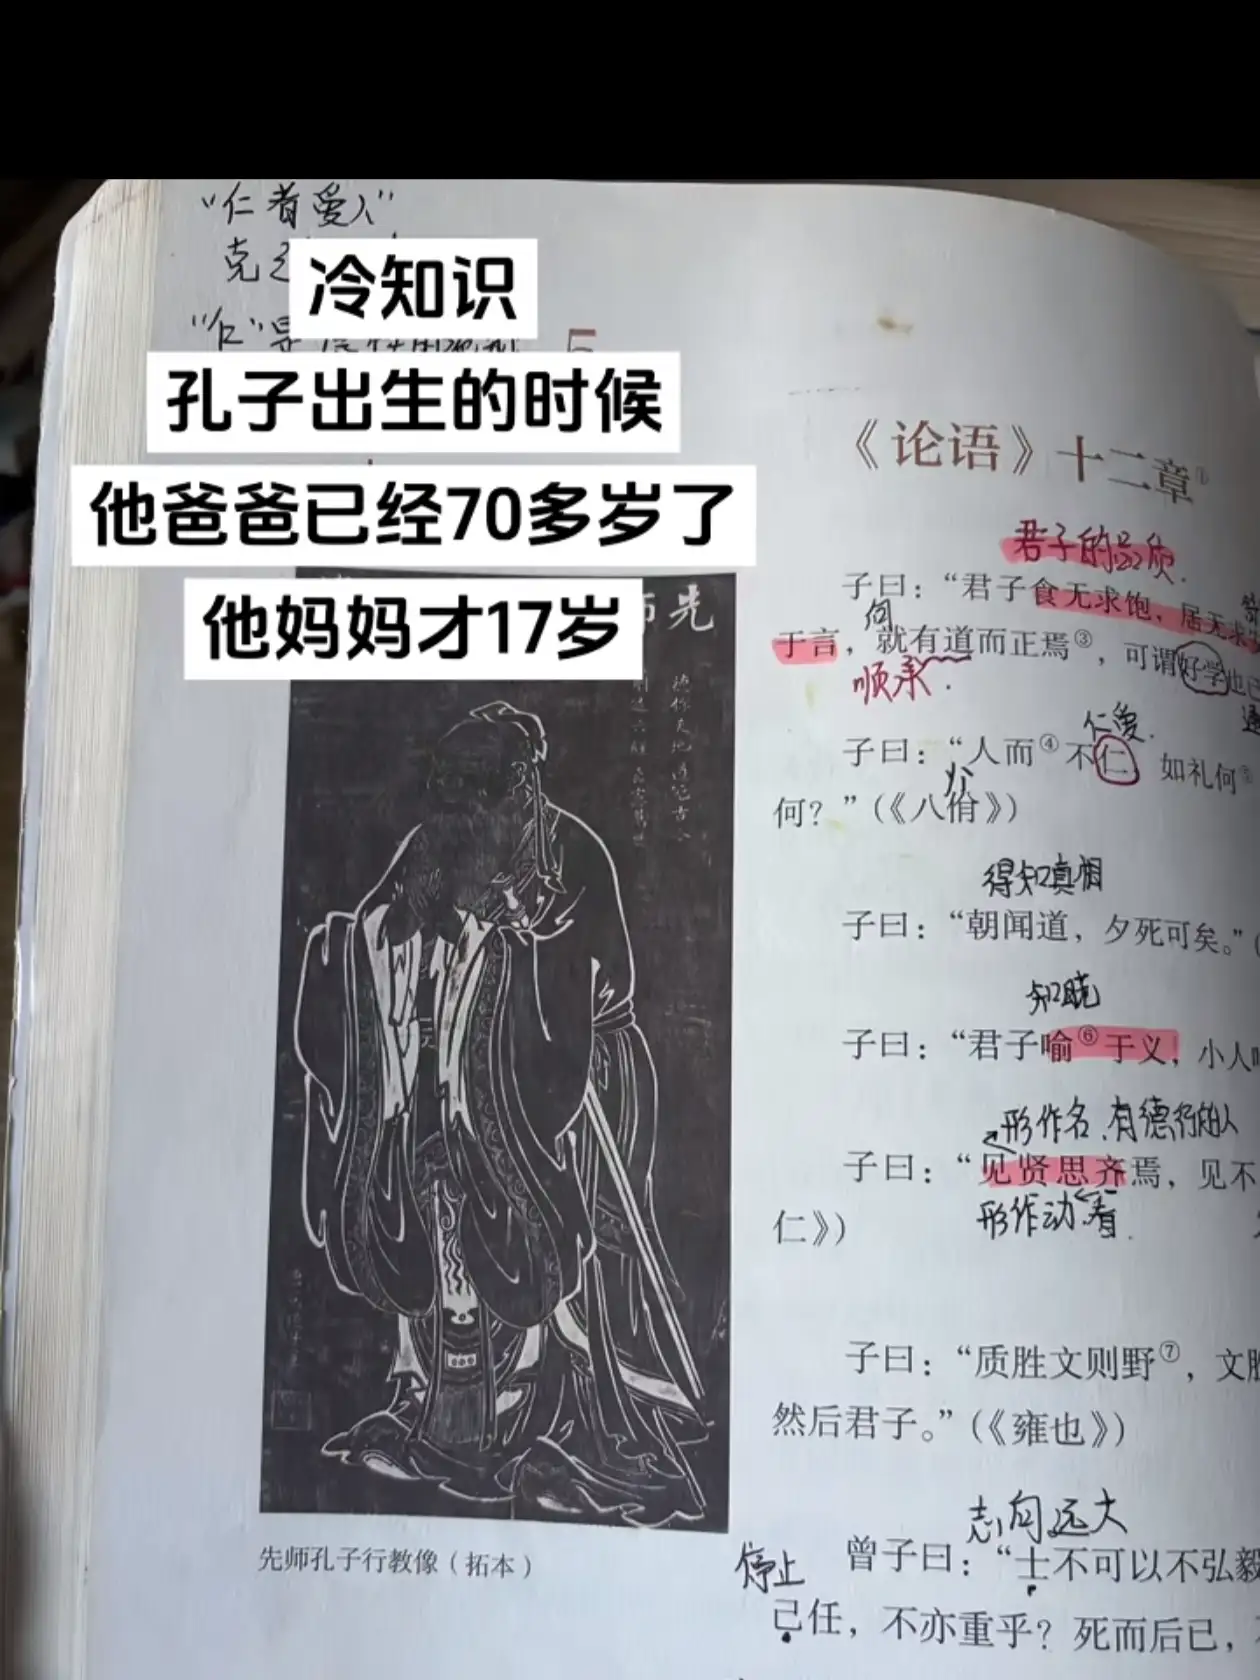 “仁者爱人”
克己
冷知识
孔子出生的时候
他爸爸已经70多岁了
他妈妈才17岁
5
《论语》十二章①
君子的品质.
子曰：“君子食无求饱，居无求
何
于言，就有道而正焉③，可谓好学也已
顺承.
仁爱.
子曰：“人而④不仁 如礼何⑤
何？”（《八佾》）
得知真相
子曰：“朝闻道，夕死可矣。”（
知晓
子曰：“君子喻⑥于义，小人喻
形作名、有德行的人
子曰：“见贤思齐焉，见不
形作动 看.
仁》）
子曰：“质胜文则野⑦，文胜
然后君子。”（《雍也》）
志向远大
停止 曾子曰：“士不可以不弘毅
己任，不亦重乎？死而后已，不
先师
德侔天地道冠古今
删述六经垂宪万世
先师孔子行教像（拓本）